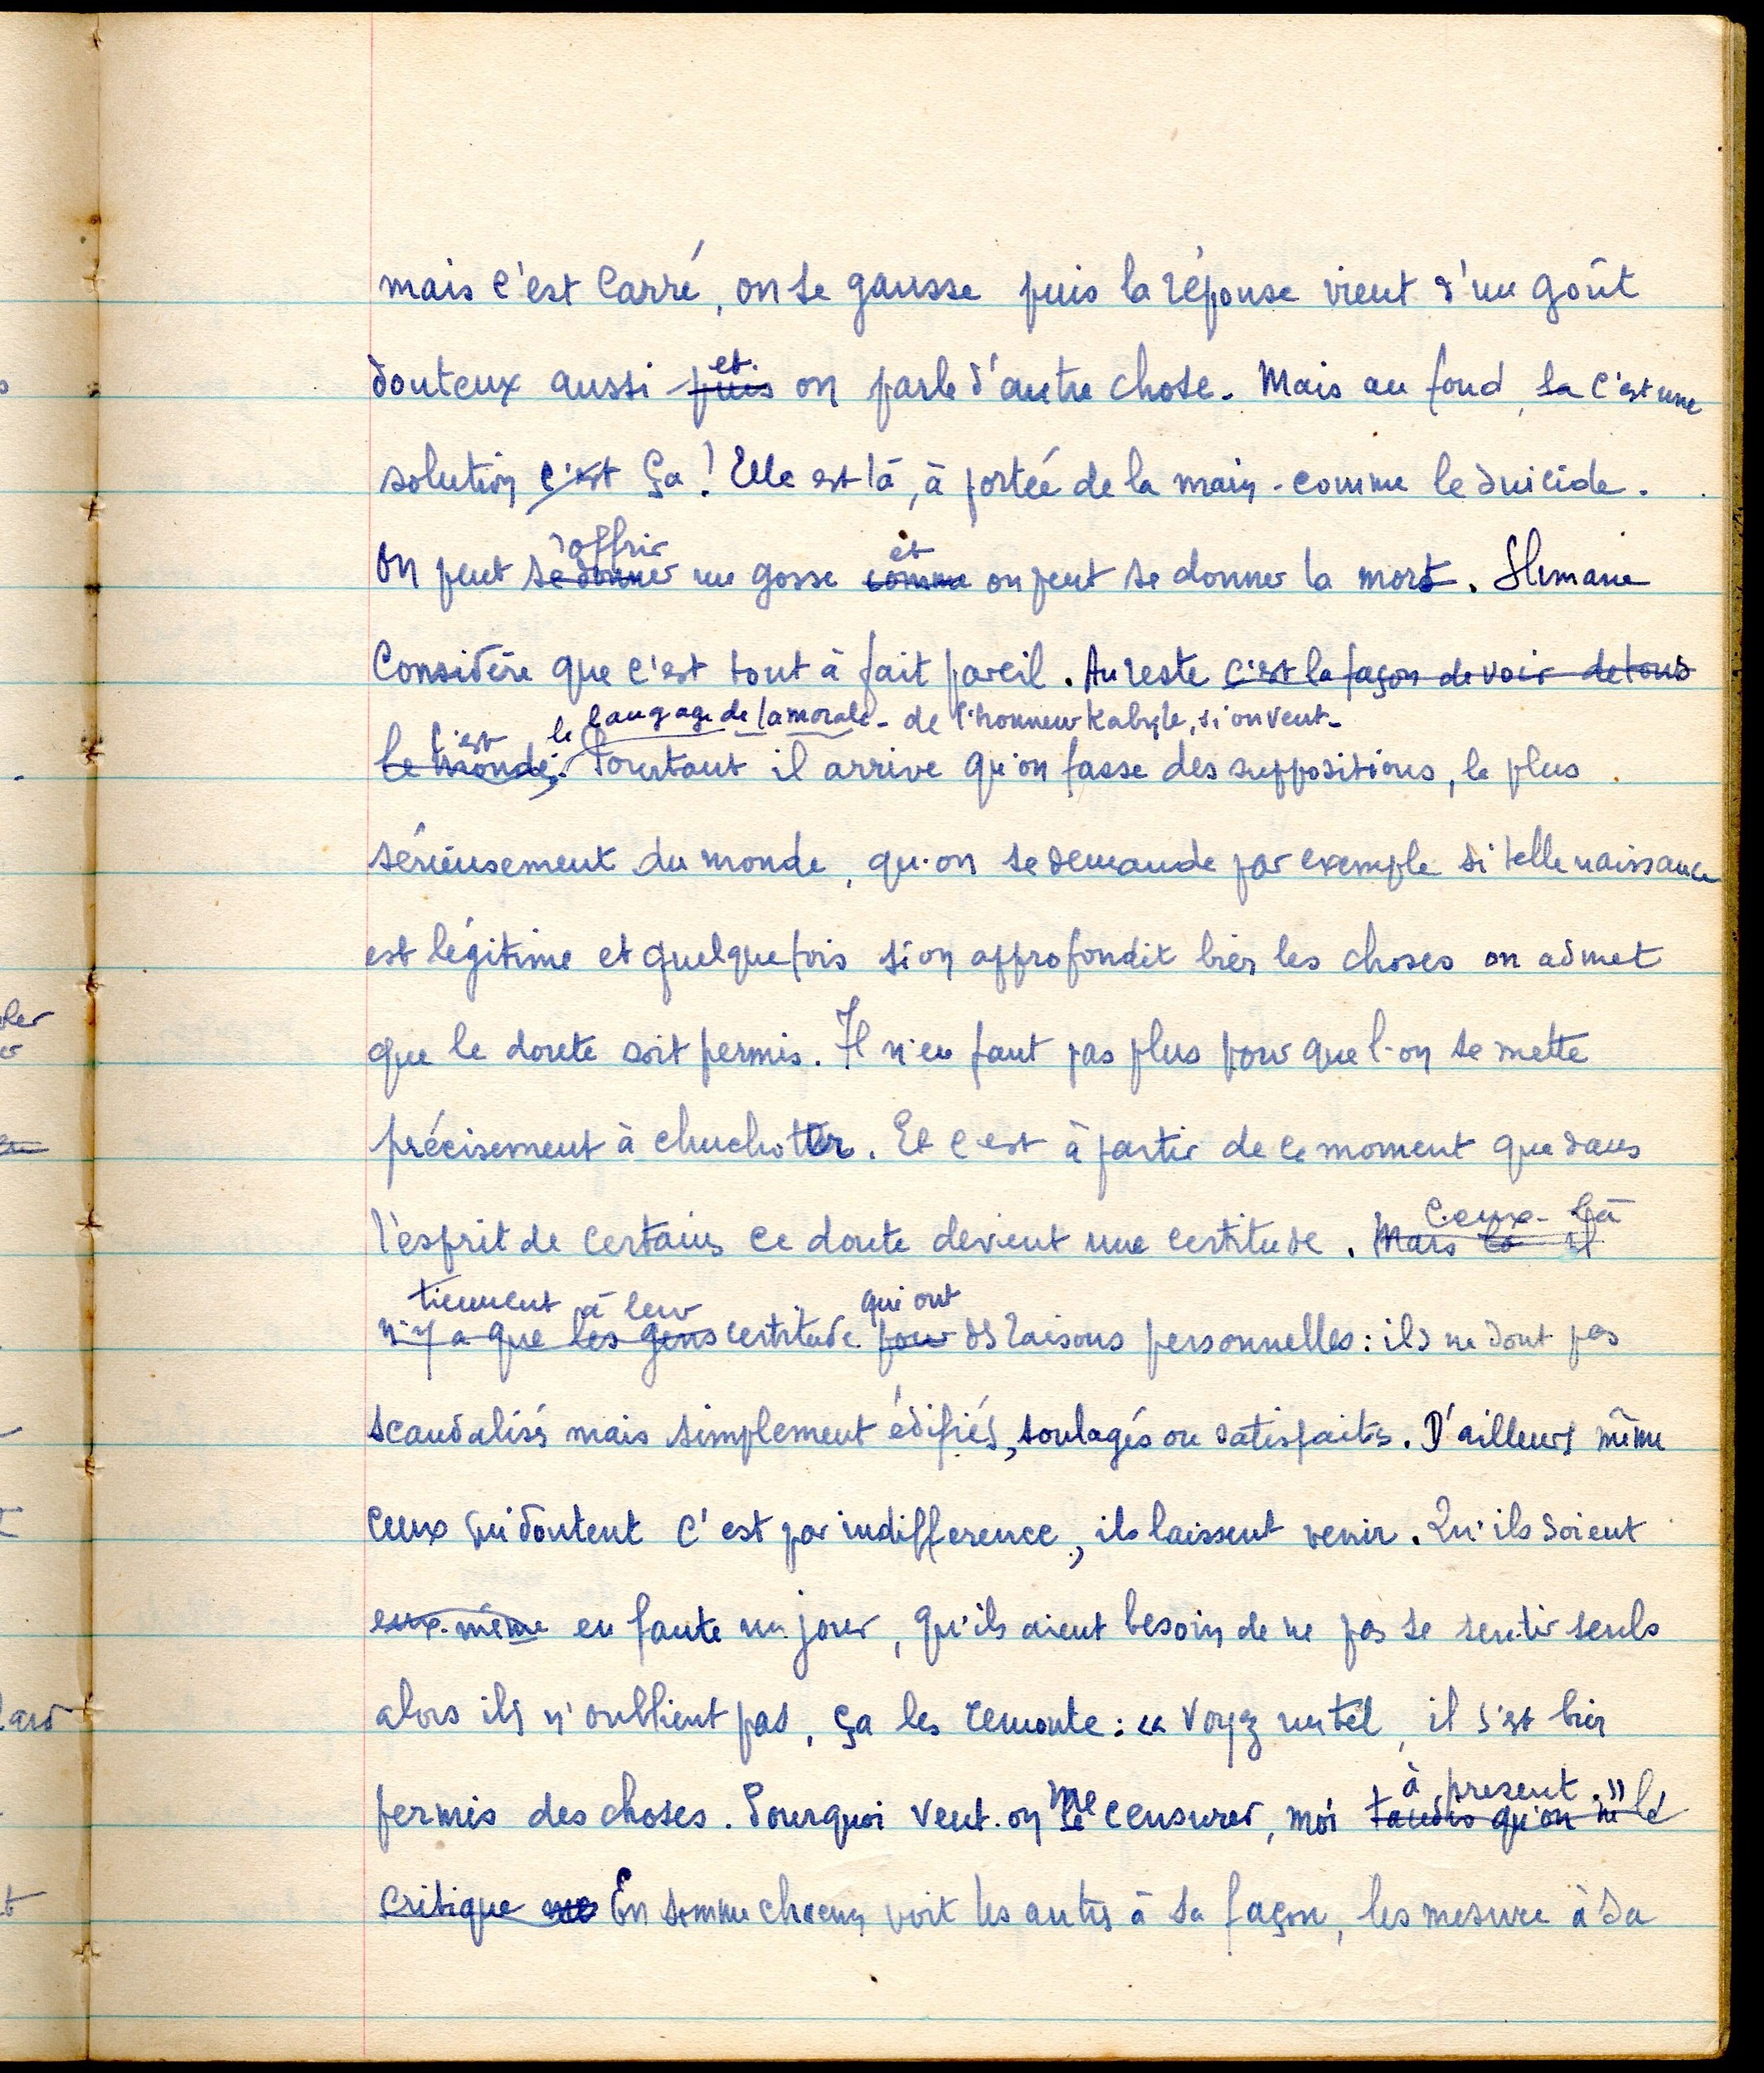 mais c'est carré, on se gausse puis la réponse vient d'un goût
et
douteux aussi puis on parle d'autre chose. Mais au fond, sa c'est une
solution c'est ça ! Elle est là, à portée de la main - comme le suicide.
s'offrir et
On peut se donner un gosse comme on peut se donner la mort. Slimane
considère que c'est tout à fait pareil. Au reste c'est la façon de voir de tous
c'est le langage de la morale - de l'honneur Kabyle, si on veut -
le monde. Pourtant il arrive qu'on fasse des suppositions, le plus
sérieusement du monde, qu'on se demande par exemple si telle naissance
est légitime et quelquefois si on approfondit bien les choses on admet
que le doute soit permis. Il n'en faut pas plus pour que l'on se mette
précisement à chuchotter. Et c'est à partir de ce moment que dans
Ceux-là
l'esprit de certains ce doute devient une certitude. Mais là il
tiennent à leur qui ont
n'y a que les gens certitude pour ds raisons personnelles : ils ne sont pas
scandalisés mais simplement édifiés, soulagés ou satisfaits. D'ailleurs même
ceux qui doutent c'est par indifference, ils laissent venir. Qu'ils soient
eux-même en faute un jour, qu'ils aient besoin de ne pas se sentir seuls
alors ils n'oublient pas, ça les remonte : « Voyez un tel, il s'est bien
me à présent. "
permis des choses. Pourquoi veut-on le censurer, moi tandis qu'on ne le
critique En somme chacun voit les autres à sa façon, les mesure à sa
ler
ard
t